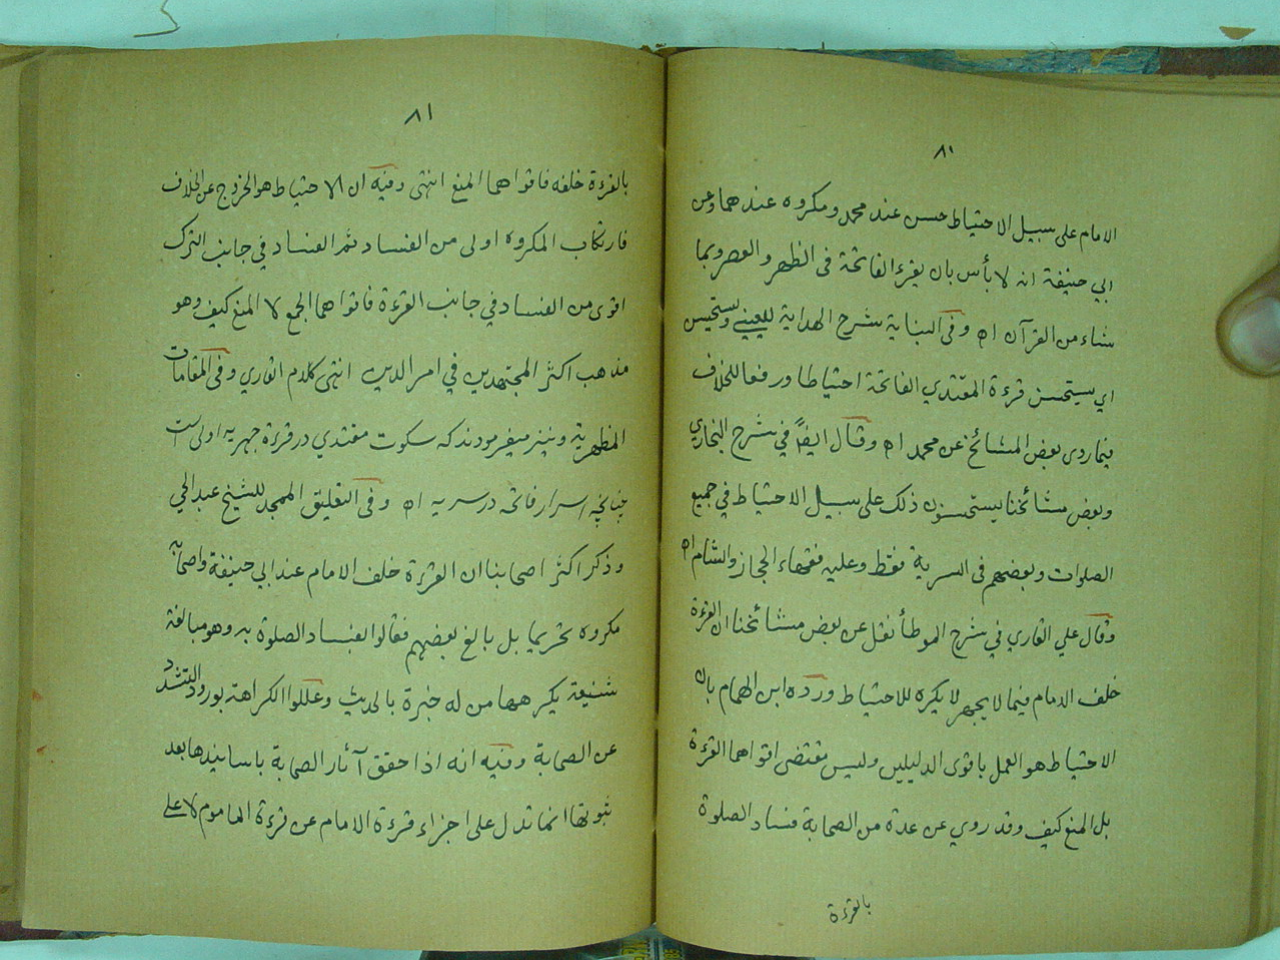 ٨٠
الامام على سبيل الاحتياط حسن عند محمد ومكروه عندهما وعن
ابي حنيفة انه لا بأس بان يقرء الفاتحة في الظهر والعصر وبما
شاء من القرآن اه وفى البناية شرح الهداية للعيني ويستحسن
اي يستحسن قرءة المقتدي الفاتحة احتياطا ورفعا للخلاف
فيما روى بعض المشائخ عن محمد اه وقال ايضًا في شرح البخاري
وبعض مشائخنا يستحسنون ذلك على سبيل الاحتياط في جميع
الصلوات وبعضهم فى السرية فقط وعليه فقهاء الحجاز والشام اه
وقال علي القاري في شرح الموطأ نقل عن بعض مشائخنا ان القرءة
خلف الامام فيما لا يجهر لا يكره للاحتياط ورده ابن الهمام بان
الاحتياط هو العمل باقوى الدليلين وليس مقتضى اقواهما القرءة
بل المنع كيف وقد روي عن عدة من الصحابة فساد الصلوة
بالقرءة
٨١
بالقرءة خلفه فاقواهما المنع انتهى وفيه ان الاحتياط هو الخروج عن الخلاف
فارتكاب المكروه اولى من الفساد ثم الفساد في جانب الترك
اقوى من الفساد في جانب القرءة فاقواهما الجمع لا المنع كيف وهو
مذهب اكثر المجتهدين في امر الدين انتهى كلام القاري وفى المقامات
المظهرية ونيز ميفرمودند كه سكوت مقتدي در قرءة جهريه اولى است
چنانچه اسرار فاتحه در سريه اه وفى التعليق الممجد للشيخ عبد الحي
وذكر اكثر اصحابنا ان القرءة خلف الامام عند ابي حنيفة واصحابه
مكروه تحريما بل بالغ بعضهم فقالوا بفساد الصلوة به وهو مبالغة
شنيعة يكرهها من له خبرة بالحديث وعللوا الكراهة بورود التشدد
عن الصحابة وفيه انه اذا حقق آثار الصحابة باسانيدها بعد
ثبوتها انما تدل على اجزاء قرءة الامام عن قرءة الماموم لا على